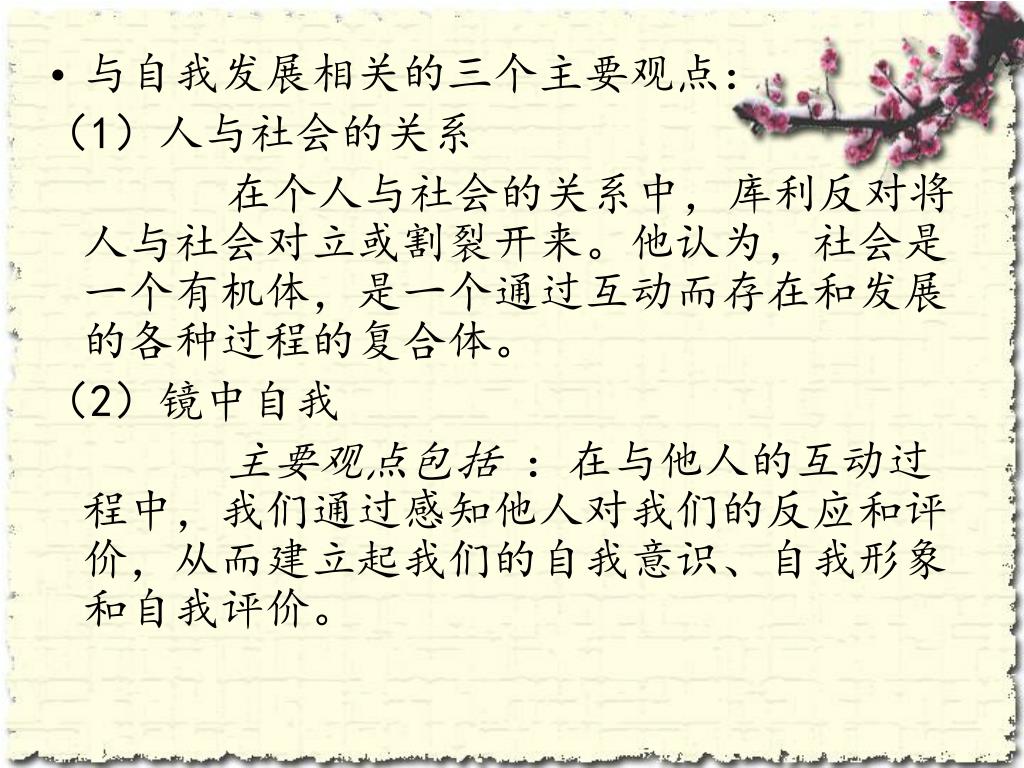 • 与自我发展相关的三个主要观点：
（1）人与社会的关系
在个人与社会的关系中，库利反对将
人与社会对立或割裂开来。他认为，社会是
一个有机体，是一个通过互动而存在和发展
的各种过程的复合体。
（2）镜中自我
主要观点包括 ：在与他人的互动过
程中，我们通过感知他人对我们的反应和评
价，从而建立起我们的自我意识、自我形象
和自我评价。